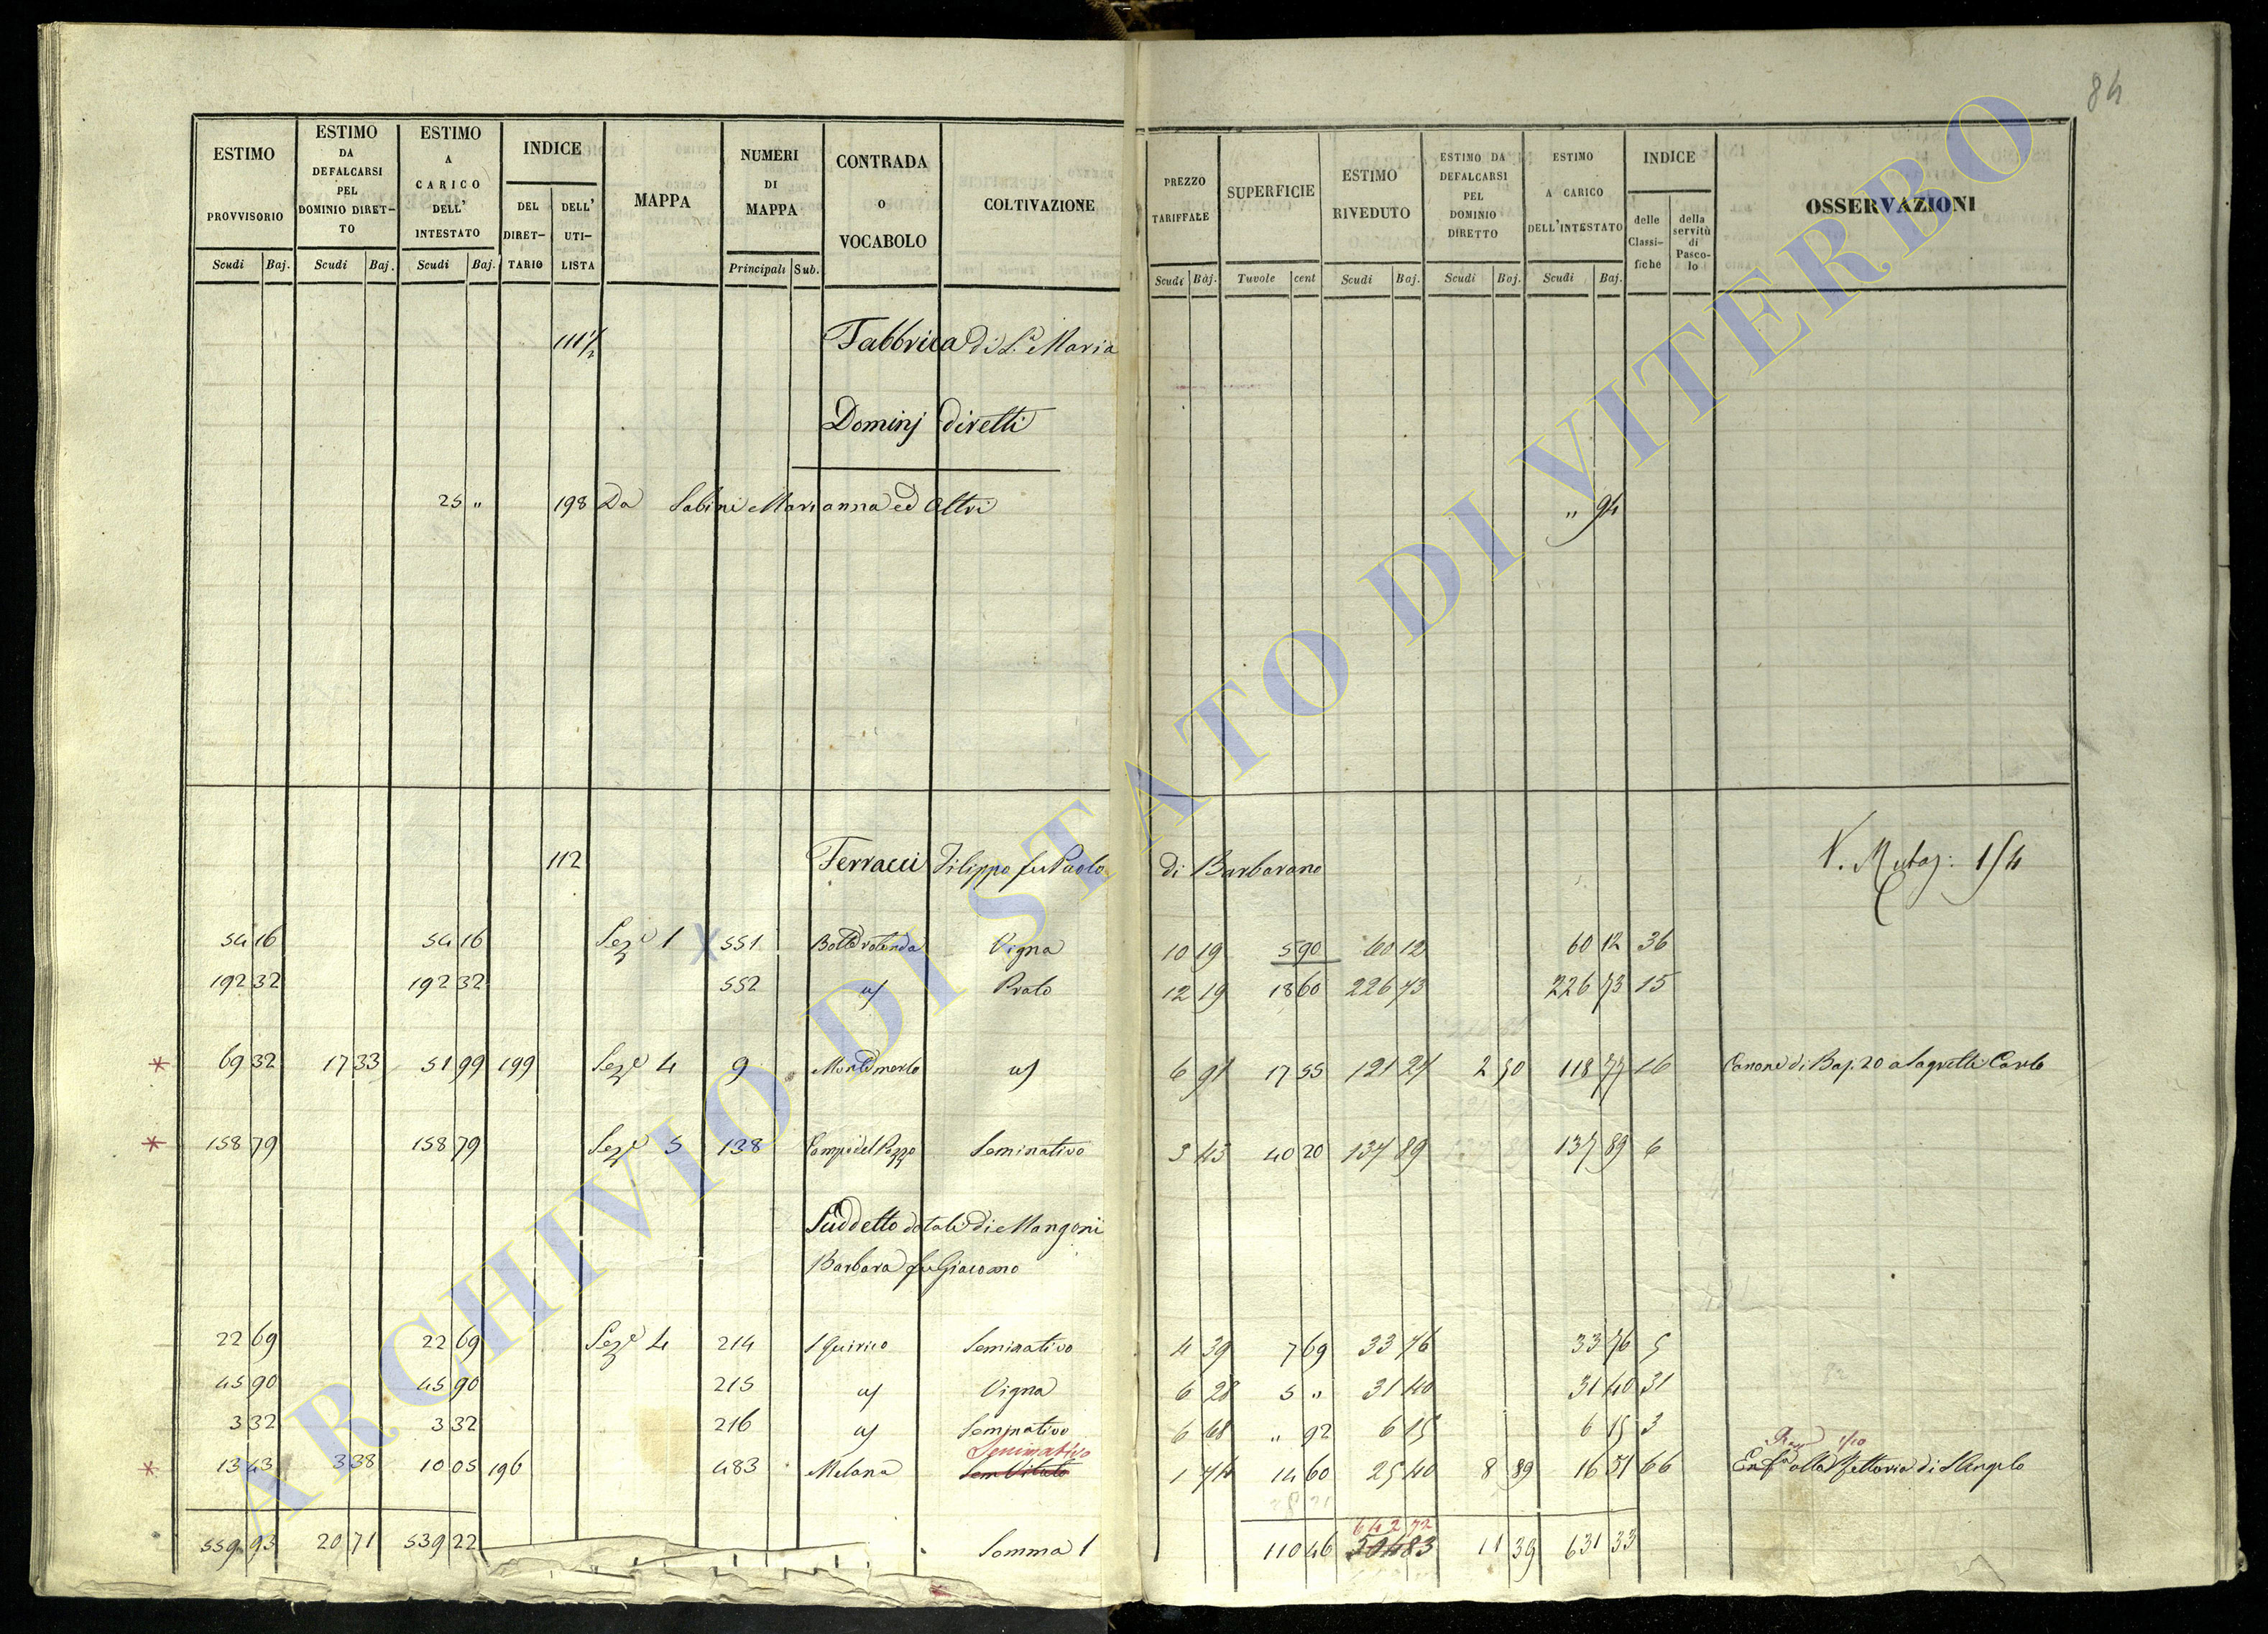 84
ESTIMO PROVVISORIO Scudi Baj. | ESTIMO DA DEFALCARSI PEL DOMINIO DIRETTO Scudi Baj. | ESTIMO A CARICO DELL' INTESTATO Scudi Baj. | INDICE DEL DIRETTARIO DELL' UTILISTA | MAPPA | NUMERI DI MAPPA Principali Sub. | CONTRADA O VOCABOLO | COLTIVAZIONE | PREZZO TARIFFALE Scudi Baj. | SUPERFICIE Tavole cent | ESTIMO RIVEDUTO Scudi Baj. | ESTIMO DA DEFALCARSI PEL DOMINIO DIRETTO Scudi Baj. | ESTIMO A CARICO DELL'INTESTATO Scudi Baj. | INDICE delle Classifiche della servitù di Pascolo | OSSERVAZIONI
111 1/2 Fabbrica di S. Maria
Dominj diretti
25 " 198 Da Sabini Marianna ed Altri " 94
112 Ferracci Filippo fu Paolo di Barbarano V. Mutaz: 154
54 16 54 16 Sez.e 1 X 551 Botte rotonda Vigna 10 19 5 90 60 12 60 12 36
192 32 192 32 552 " Prato 12 19 18 60 226 73 226 73 15
* 69 32 17 33 51 99 199 Sez.e 4 9 Monte merlo " 6 91 17 55 121 27 2 50 118 77 16 Canone di Baj. 20 a Sagretti Carlo
* 158 79 158 79 Sez.e 5 138 Campo del Pozzo Seminativo 3 43 40 20 137 89 137 89 6
Suddetto dotali di Mangoni
Barbara fu Giacomo
22 69 22 69 Sez.e 4 214 S Quirico Seminativo 4 39 7 69 33 76 33 76 5
45 90 45 90 215 " Vigna 6 28 5 " 31 40 31 40 31
3 32 3 32 216 " Seminativo 6 68 " 92 6 15 6 15 3
Seminativo
* 13 43 3 38 10 05 196 483 Melana Sem Vitato 1 74 14 60 25 40 8 89 16 51 66 alla Rettoria di S Angelo
642 72
559 93 20 71 539 22 Somma 1 110 46 504 83 11 39 631 33
ARCHIVIO DI STATO DI VITERBO